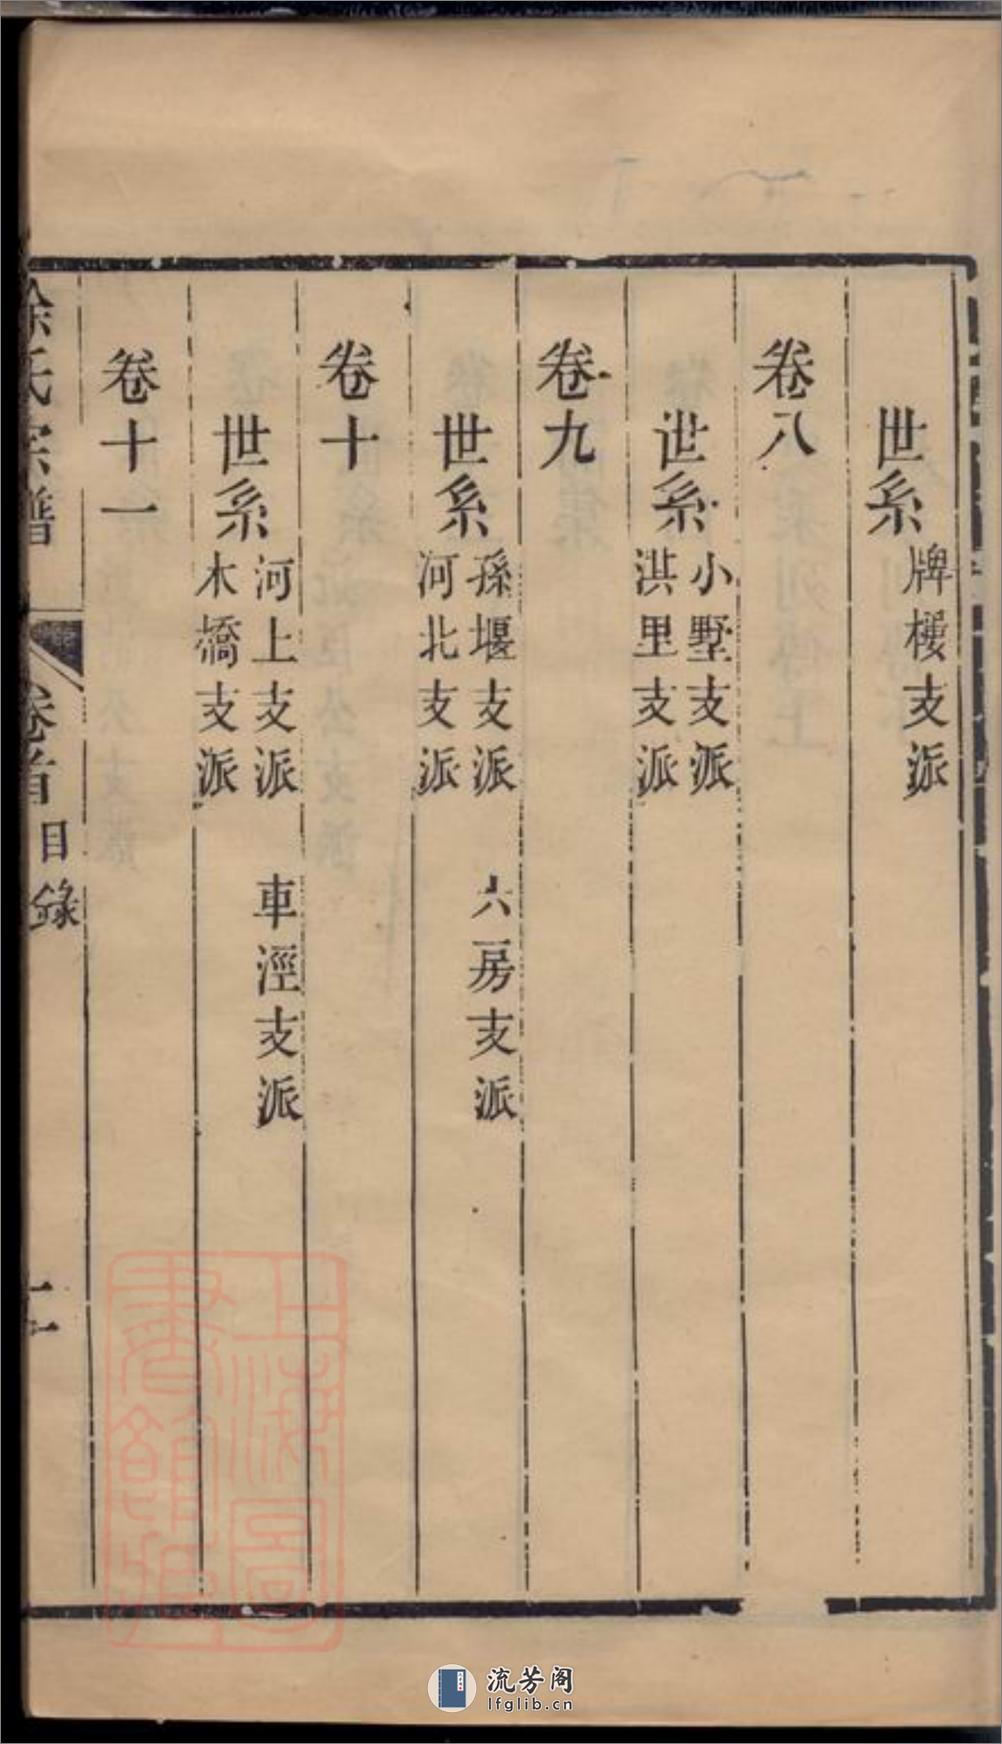 世系
牌樓支派
卷八
世系
小墅支派
淇里支派
卷九
世系
孫堰支派 六房支派
河北支派
卷十
世系
河上支派 車涇支派
木橋支派
卷十一
徐氏宗譜 卷首 目錄
上海圖書館藏
流芳阁
lfglib.cn